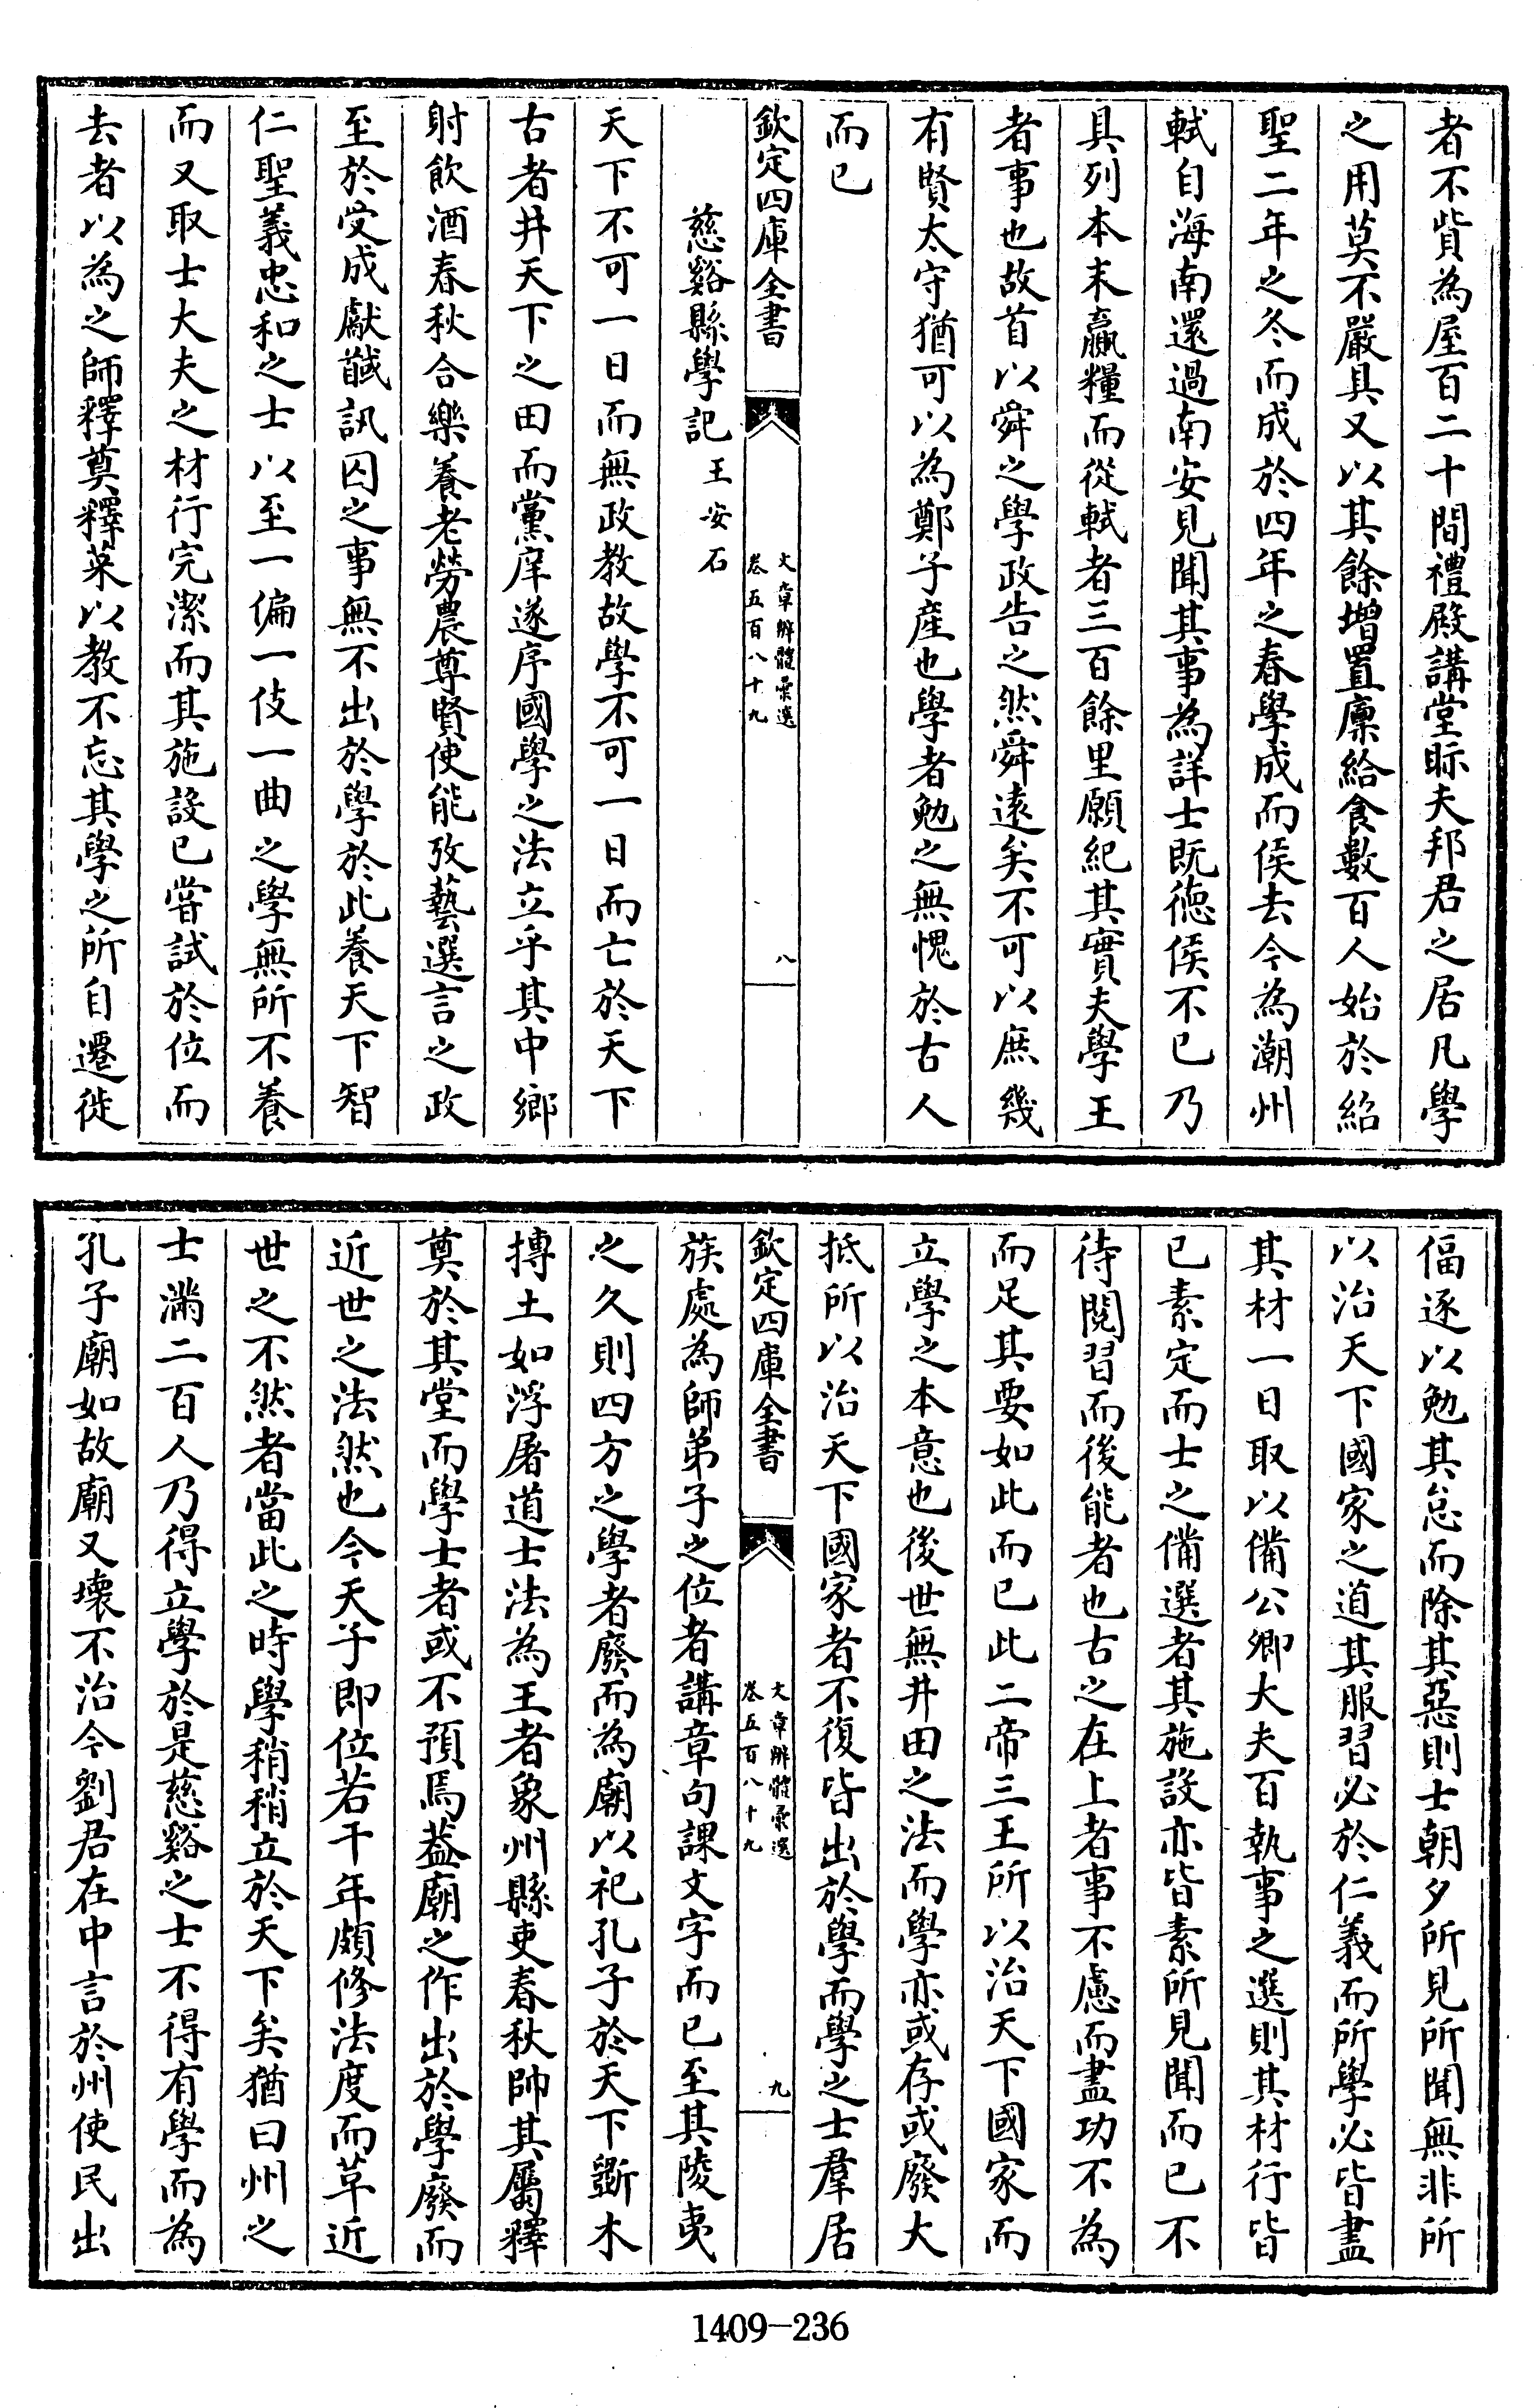 者不貲為屋百二十間禮殿講堂眎夫邦君之居凡學
之用莫不嚴具又以其餘增置廩給食數百人始於紹
聖二年之冬而成於四年之春學成而侯去今為潮州
軾自海南還過南安見聞其事為詳士既德侯不已乃
具列本末贏糧而從軾者三百餘里願紀其實夫學王
者事也故首以舜之學政告之然舜遠矣不可以庶幾
有賢太守猶可以為鄭子產也學者勉之無愧於古人
而已
欽定四庫全書
文章辨體彙選
卷五百八十九
八
慈谿縣學記王安石
天下不可一日而無政教故學不可一日而亡於天下
古者井天下之田而黨庠遂序國學之法立乎其中鄉
射飲酒春秋合樂養老勞農尊賢使能攷藝選言之政
至於受成獻馘訊囚之事無不出於學於此養天下智
仁聖義忠和之士以至一偏一伎一曲之學無所不養
而又取士大夫之材行完潔而其施設已嘗試於位而
去者以為之師釋奠釋菜以教不忘其學之所自遷徙
偪逐以勉其怠而除其惡則士朝夕所見所聞無非所
以治天下國家之道其服習必於仁義而所學必皆盡
其材一日取以備公卿大夫百執事之選則其材行皆
已素定而士之備選者其施設亦皆素所見聞而已不
待閱習而後能者也古之在上者事不慮而盡功不為
而足其要如此而已此二帝三王所以治天下國家而
立學之本意也後世無井田之法而學亦或存或廢大
抵所以治天下國家者不復皆出於學而學之士羣居
欽定四庫全書
文章辨體彙選
卷五百八十九
九
族處為師弟子之位者講章句課文字而已至其陵夷
之久則四方之學者廢而為廟以祀孔子於天下斲木
摶土如浮屠道士法為王者象州縣吏春秋帥其屬釋
奠於其堂而學士者或不預焉葢廟之作出於學廢而
近世之法然也今天子即位若干年頗修法度而草近
世之不然者當此之時學稍稍立於天下矣猶曰州之
士滿二百人乃得立學於是慈谿之士不得有學而為
孔子廟如故廟又壊不治今劉君在中言於州使民出
1409-236